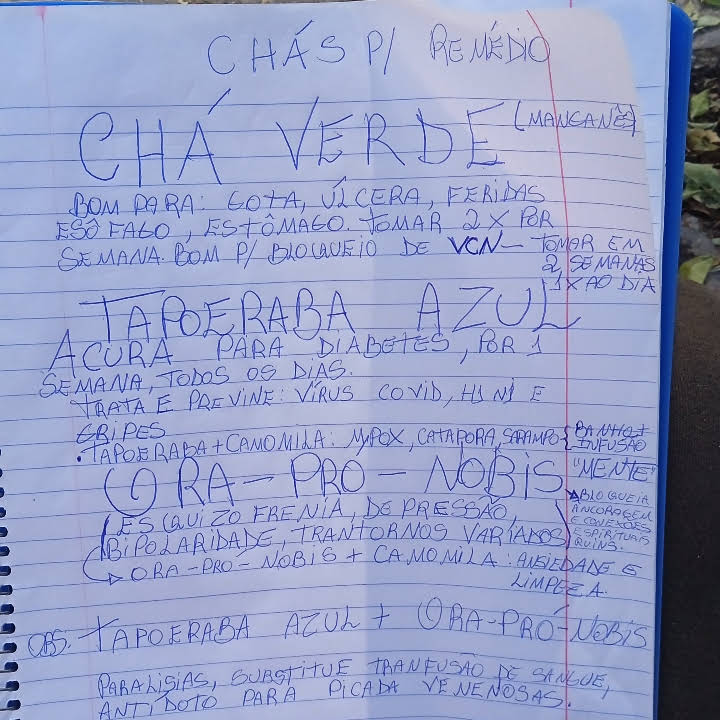 CHÁS P/ REMÉDIO
CHÁ VERDE (MANGANÊS)
BOM PARA: GOTA, ÚLCERA, FERIDAS
ESÔFAGO, ESTÔMAGO. TOMAR 2X POR
SEMANA. BOM P/ BLOQUEIO DE VCN - TOMAR EM
2 SEMANAS
1X AO DIA
TAPOERABA AZUL
A CURA PARA DIABETES, POR 1
SEMANA, TODOS OS DIAS.
TRATA E PREVINE: VÍRUS COVID, H1N1 E
GRIPES
. TAPOERABA + CAMOMILA: MPOX, CATAPORA, SARAMPO { BANHO +
INFUSÃO
ORA-PRO-NOBIS "MENTE"
ESQUIZOFRENIA, DEPRESSÃO,
BIPOLARIDADE, TRANTORNOS VARIADOS
BLOQUEIA
ANCORAGEM
E CONEXÕES
ESPIRITUAIS
RUINS.
ORA-PRO-NOBIS + CAMOMILA: ANSIEDADE E
LIMPEZA.
OBS: TAPOERABA AZUL + ORA-PRÓ-NOBIS
PARALISIAS, SUBSTITUE TRANFUSÃO DE SANGUE,
ANTÍDOTO PARA PICADA VENENOSAS.